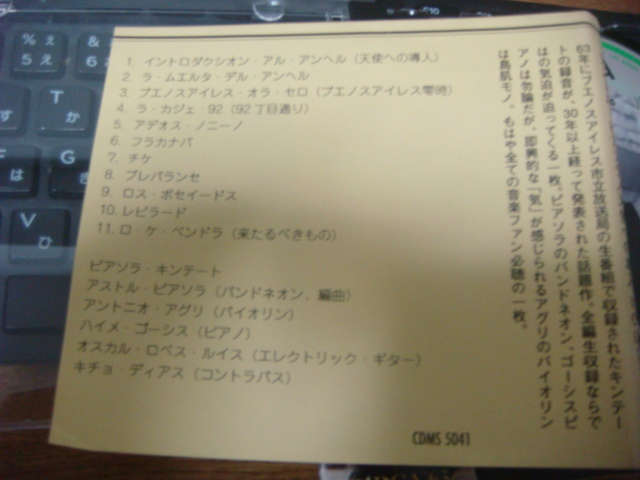 1. イントロダクシオン・アル・アンヘル(天使への導入)
2. ラ・ムエルタ・デル・アンヘル
3. ブエノスアイレス・オラ・セロ(ブエノスアイレス零時)
4. ラ・カジェ・92(92丁目通り)
5. アデオス・ノニーノ
6. フラカナパ
7. チケ
8. プレパランセ
9. ロス・ポセイードス
10. レビラード
11. ロ・ケ・ベンドラ(来たるべきもの)
ピアソラ・キンテート
アストル・ピアソラ(バンドネオン、編曲)
アントニオ・アグリ(バイオリン)
ハイメ・ゴーシス(ピアノ)
オスカル・ロペス・ルイス(エレクトリック・ギター)
キチョ・ディアス(コントラバス)
63年にブエノスアイレス市立放送局の生番組で収録されたキンテー
トの録音が、30年以上経って発表された話題作。全編生収録ならで
はの気迫が迫ってくる一枚。ピアソラのバンドネオン、ゴーシスピ
アノは勿論だが、即興的な「気」が感じられるアグリのバイオリン
は鳥肌モノ。もはや全ての音楽ファン必聴の一枚。
CDMS 5041
% ぇ
5 え
&
6
T
か
F
は
G
き
V
ひ